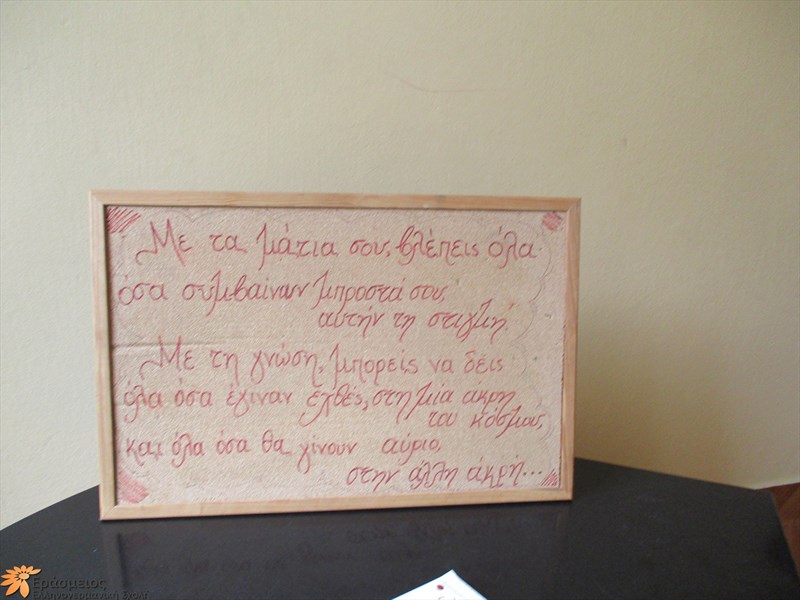 Με τα μάτια σου, βλέπεις όλα
όσα συμβαίνουν μπροστά σου,
αυτήν τη στιγμή.
Με τη γνώση, μπορείς να δεις
όλα όσα έγιναν εχθές, στη μία άκρη
του κόσμου,
και όλα όσα θα γίνουν αύριο,
στην άλλη άκρη...
Εράσμειος
Ελληνογερμανική Σχολή